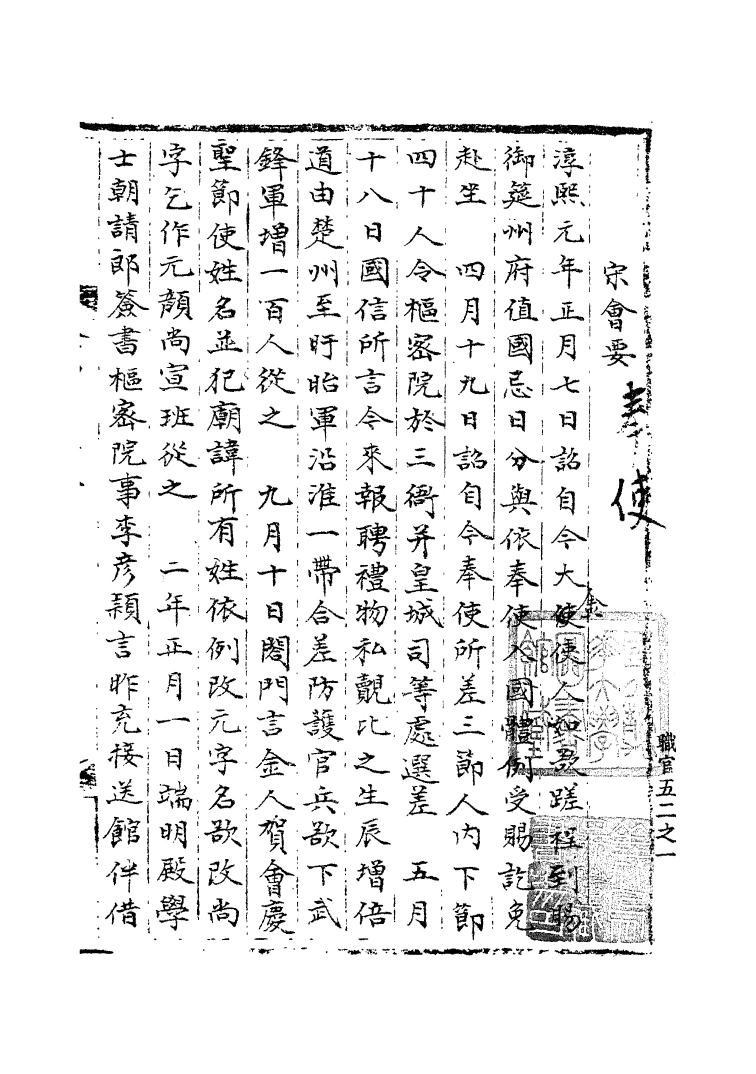 宋會要
奉使
淳熙元年正月七日詔自今大使使人如欲蹉程到賜
金
御筵州府值國忌日分與依奉使入國體例受賜訖免
赴坐　四月十九日詔自今奉使所差三節人內下節
四十人令樞密院於三衙并皇城司等處選差　五月
十八日國信所言令來報聘禮物私覿比之生辰增倍
道由楚州至盱眙軍沿淮一帶合差防護官兵欲下武
鋒軍增一百人從之　九月十日閤門言金人賀會慶
聖節使姓名並犯廟諱所有姓依例改元字名欲改尚
字乞作元顏尚宣班從之　二年正月一日端明殿學
士朝請郎簽書樞密院事李彥穎言昨充接送館伴借
職官五二之一